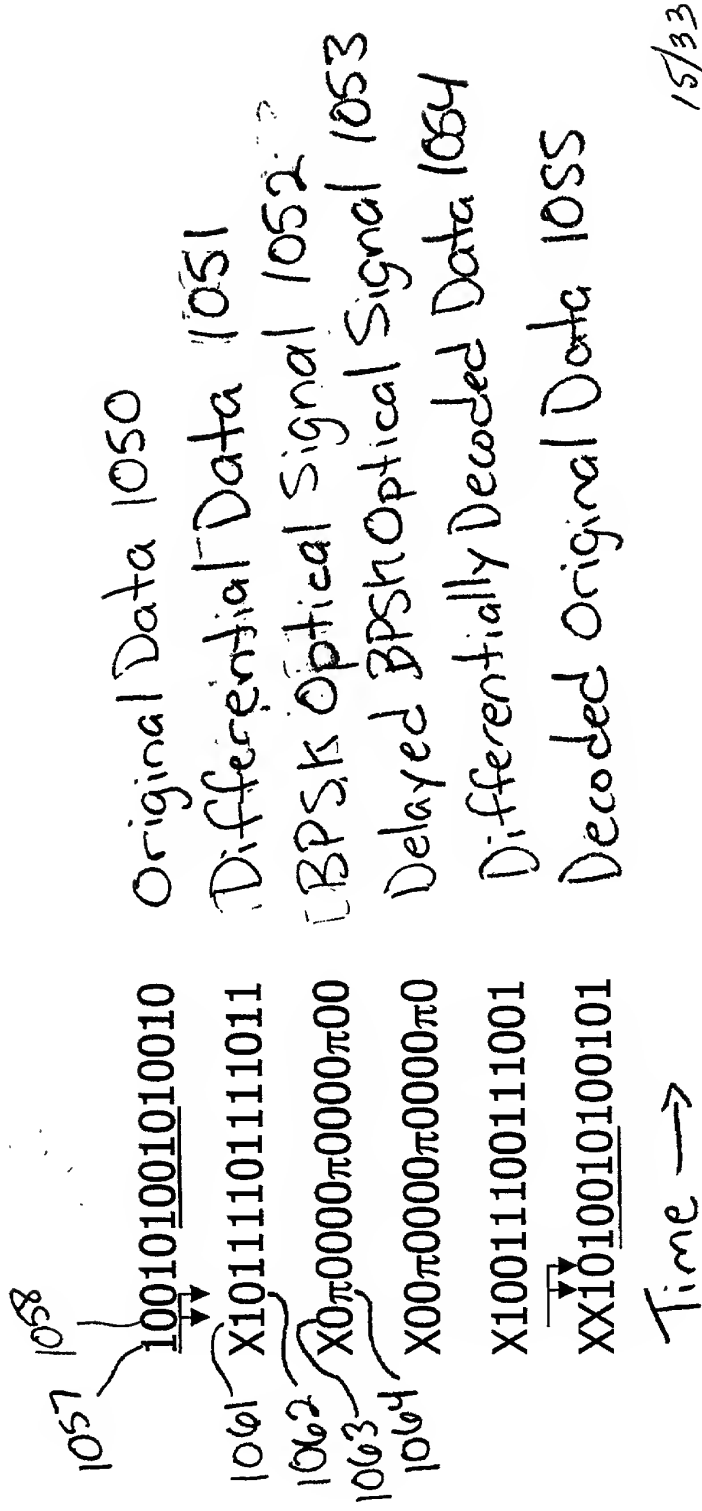 1057 1058
100101001010010 Original Data 1050
1061 X10111101111011 Differential Data 1051
1062 X0π0000π0000π00 BPSK Optical Signal 1052
1063 X00π0000π0000π0 Delayed BPSK Optical Signal 1053
1064 X10011100111001 Differentially Decoded Data 1054
XX1010010100101 Decoded Original Data 1055
Time →
15/33